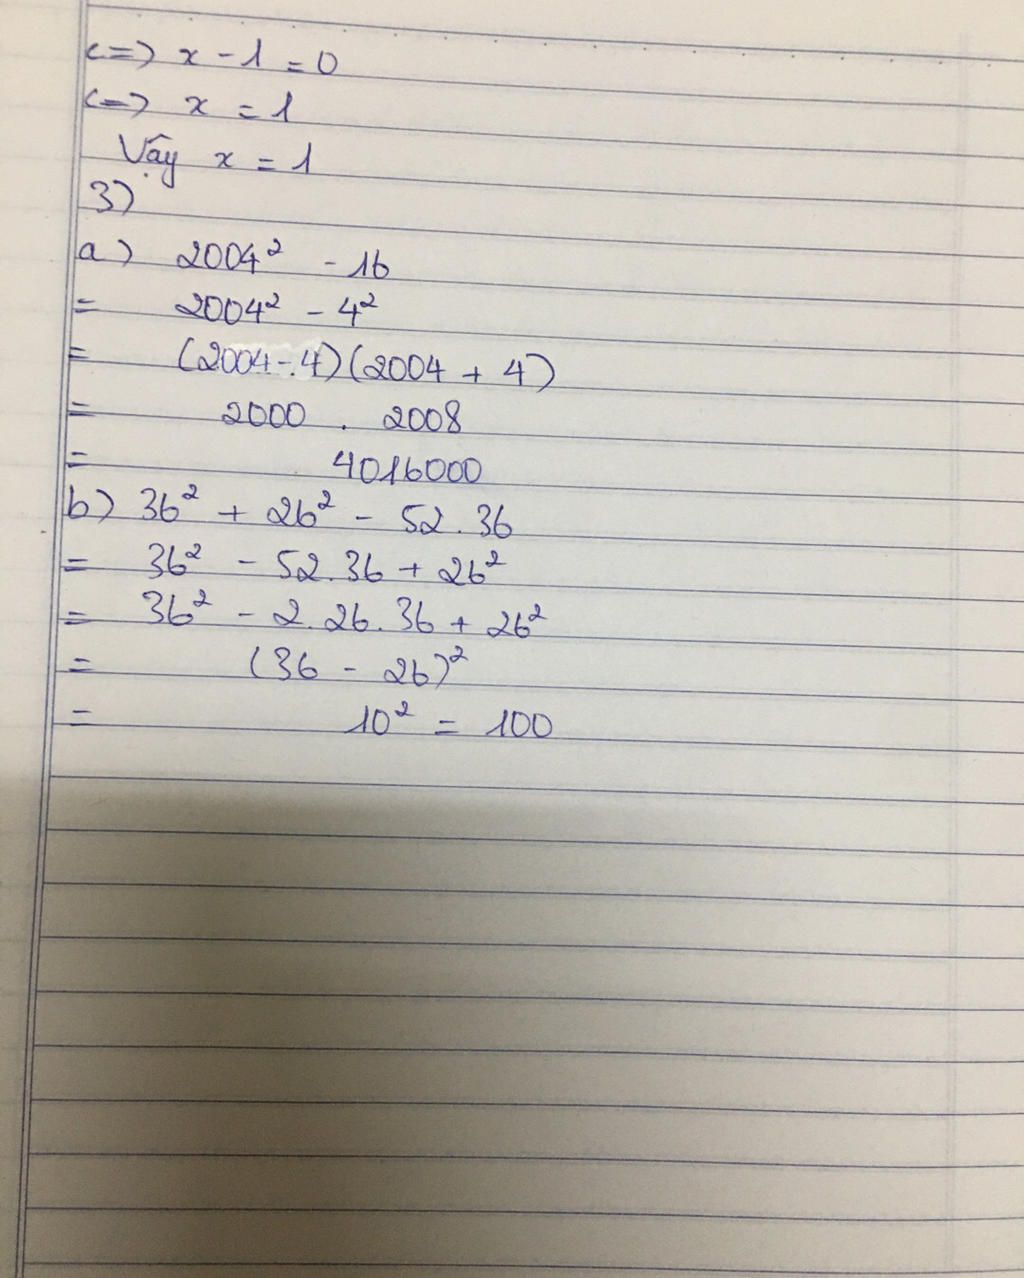 <=> x - 1 = 0
<=> x = 1
Vậy x = 1
3)
a) 2004² - 16
= 2004² - 4²
= (2004 - 4)(2004 + 4)
= 2000 . 2008
= 4016000
b) 36² + 26² - 52.36
= 36² - 52.36 + 26²
= 36² - 2.26.36 + 26²
= (36 - 26)²
= 10² = 100